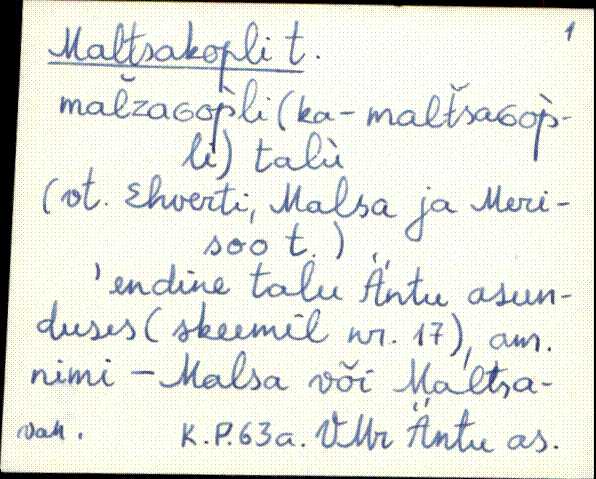 1
Maltsakopli t.
malžaGop̀li (ka - maltšaGop̀-
li) talù
(vt. Ehverti, Malsa ja Meri-
soo t.)
'endine talu Äntu asun-
duses (skeemil nr. 17), am.
nimi - Malsa või Maltsa-
van. K.P.63a. VMr Äntu as.